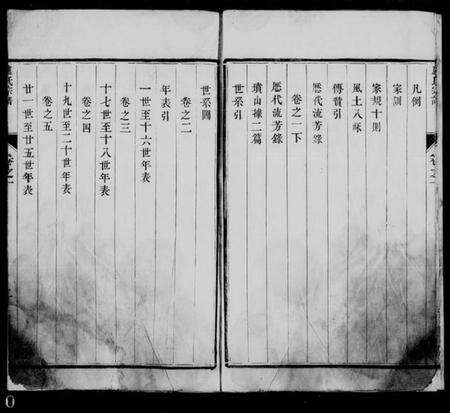 卷之一
凡例
家訓
家規十則
風土八咏
傳贊引
厯代流芳錄
卷之一下
厯代流芳錄
墳山據二篇
世系引
世系圖
卷之二
年表引
一世至十六世年表
卷之三
十七世至十八世年表
卷之四
十九世至二十世年表
卷之五
廿一世至廿五世年表
氏宗譜
卷之一
0